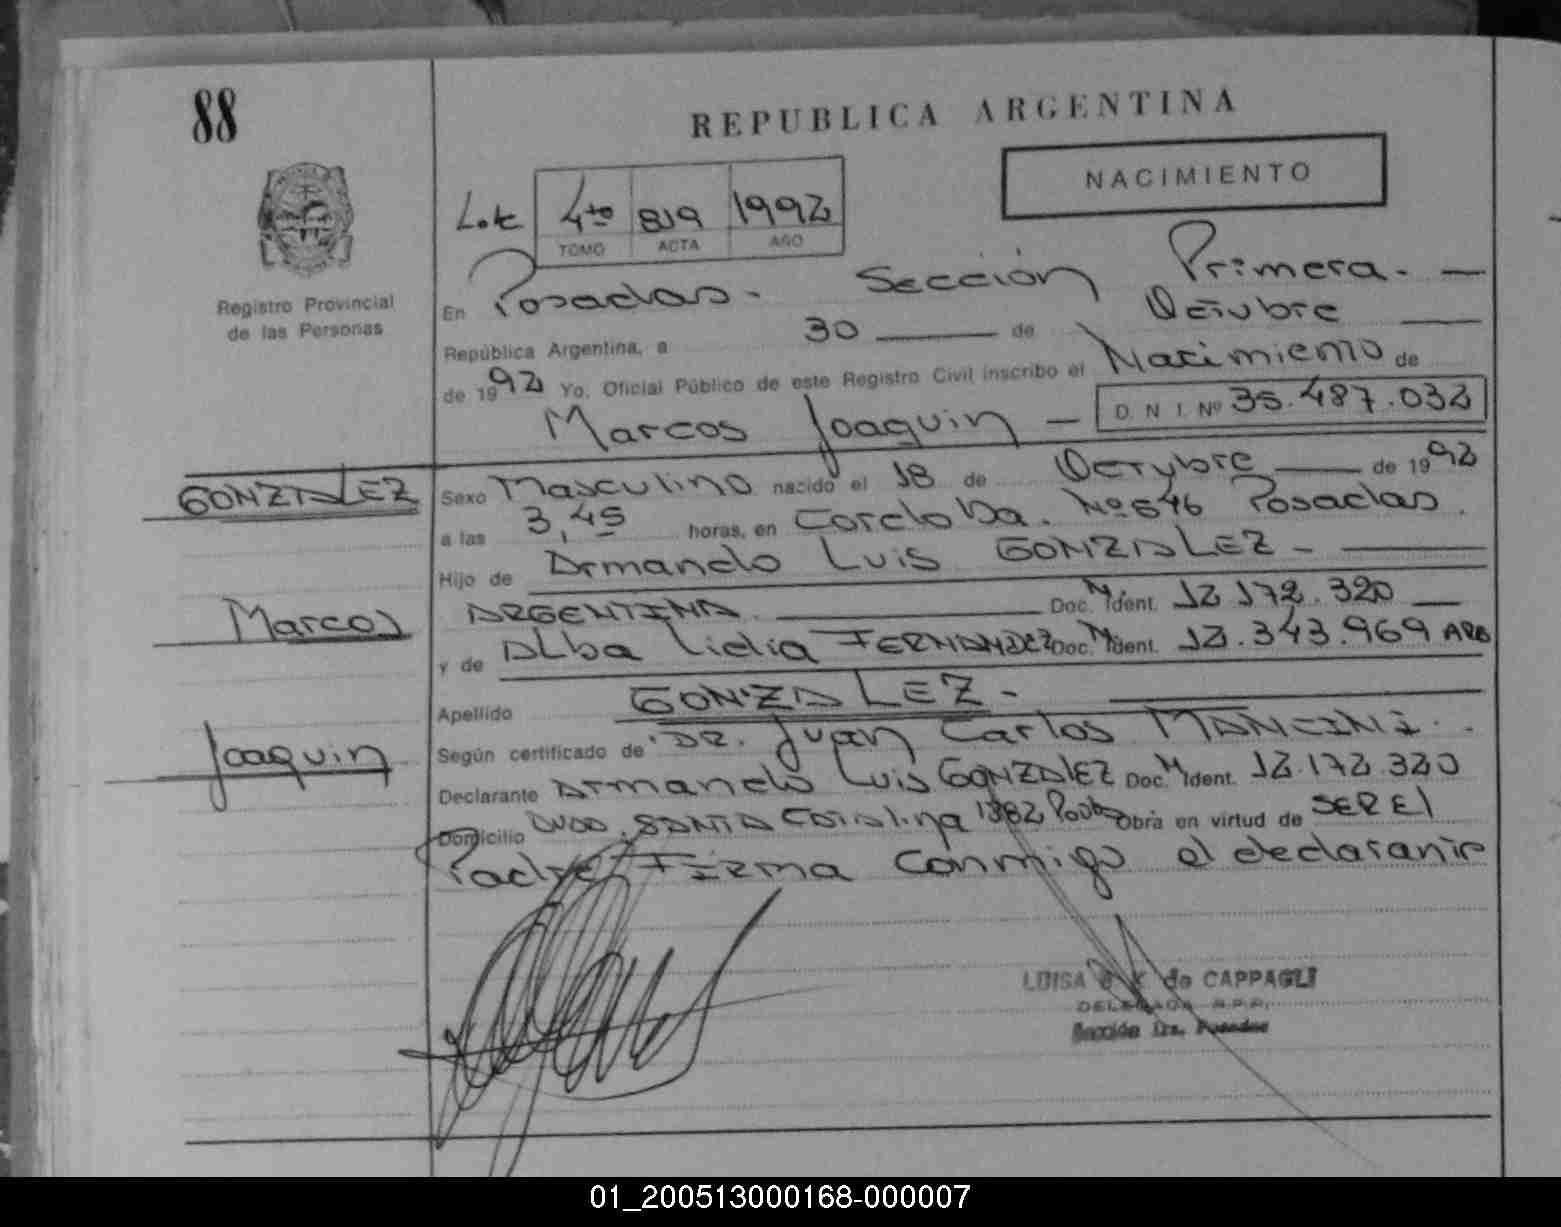 88
REPUBLICA ARGENTINA
NACIMIENTO
Lote 4to 819 1992
TOMO ACTA AÑO
Registro Provincial
de las Personas
En Posadas. Sección Primera.
República Argentina, a 30 de Octubre
de 1992 Yo, Oficial Público de este Registro Civil inscribo el Nacimiento de
Marcos Joaquin D. N. I. Nº 35.487.032
GONZALEZ
Sexo Masculino nacido el 18 de Octubre de 1992
a las 3,45 horas, en Cordoba. Nº 546 Posadas.
Hijo de Armando Luis GONZALEZ
Marcos
ARGENTINA Doc. M Ident. 12.172.320
y de Alba Lidia FERNANDEZ Doc. M Ident. 12.343.969 ARG
Apellido GONZALEZ
Joaquin
Según certificado de DR. Juan Carlos MANCINI.
Declarante Armando Luis GONZALEZ Doc. M Ident. 12.172.320
Domicilio SANTA Catalina Obra en virtud de SER El
Padre Firma conmigo el declarante
LUISA K. de CAPPAGLI
DELEGADA R.P.P.
Sección 1ra. Posadas
01_200513000168-000007